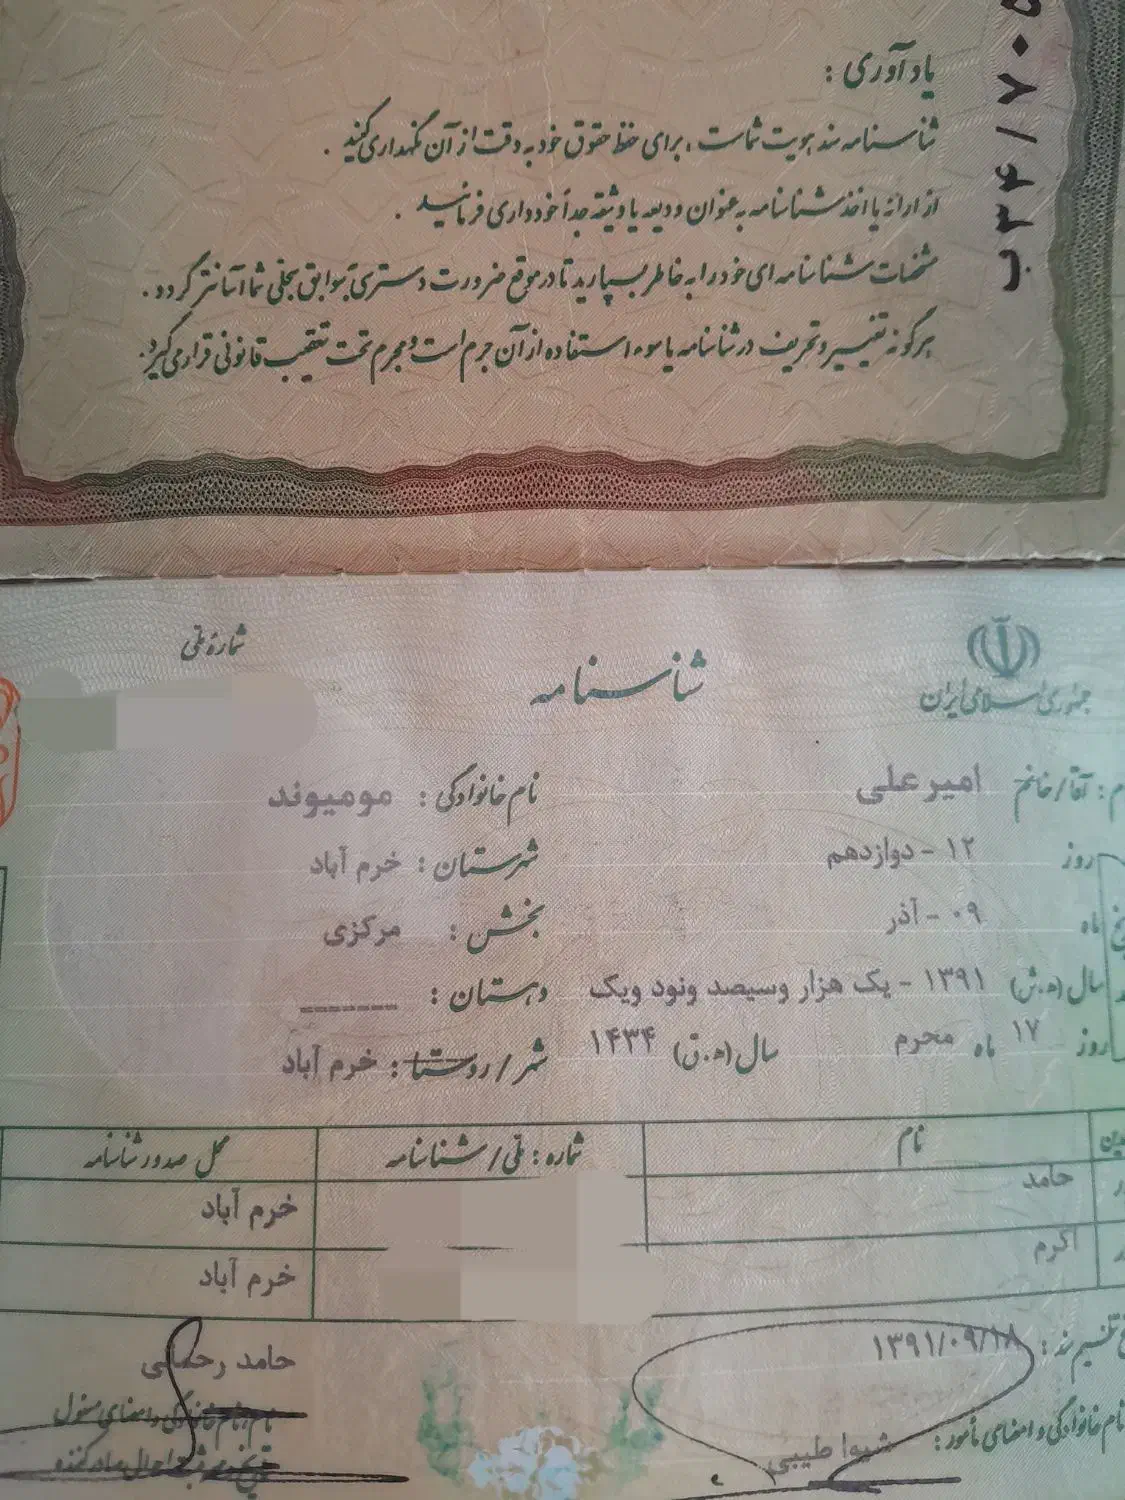 یادآوری :
شناسنامه سند هویت شماست ، برای حفظ حقوق خود به دقت از آن نگهداری کنید .
از ارائه یا اخذ شناسنامه به عنوان ودیعه یا وثیقه جداً خودداری فرمائید .
مشخصات شناسنامه ای خود را به خاطر بسپارید تا در موقع ضرورت دسترسی به سوابق سجلی شما آسانتر گردد .
هرگونه تغییر و تحریف در شناسنامه یا سوء استفاده از آن جرم است و مجرم تحت تعقیب قانونی قرار می گیرد .
ب۳۴/۷۰۵
جمهوری اسلامی ایران
شناسنامه
شماره ملی
آقا/خانم امیرعلی نام خانوادگی : مومیوند
روز ۱۲ - دوازدهم شهرستان : خرم آباد
ماه ۰۹ - آذر بخش : مرکزی
سال (ه.ش) ۱۳۹۱ - یک هزار وسیصد ونود ویک دهستان : -------
روز ۱۷ ماه محرم سال (ه.ق) ۱۴۳۴ شهر/روستا : خرم آباد
نام شماره : ملی/شناسنامه محل صدور شناسنامه
حامد خرم آباد
اکرم خرم آباد
تنظیم سند : ۱۳۹۱/۰۹/۱۸
نام خانوادگی و امضای مأمور : شیوا طیبی
حامد رحمانی
نام، نام خانوادگی و امضای مسئول